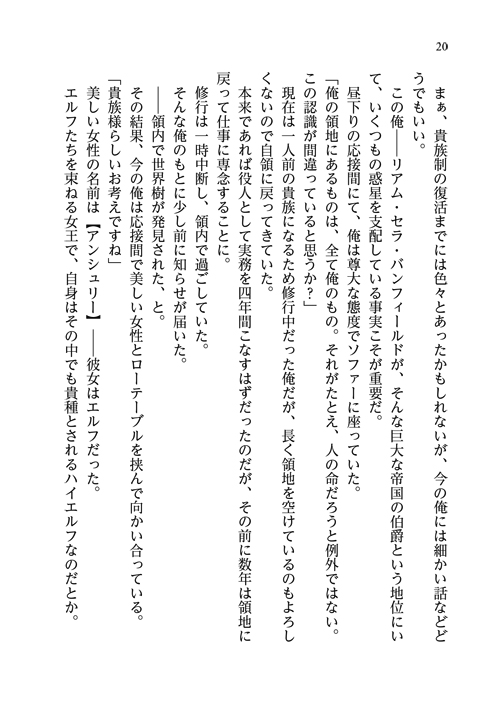 20
まぁ、貴族制の復活までには色々とあったかもしれないが、今の俺には細かい話などど
うでもいい。
この俺――リアム・セラ・バンフィールドが、そんな巨大な帝国の伯爵という地位にい
て、いくつもの惑星を支配している事実こそが重要だ。
昼下りの応接間にて、俺は尊大な態度でソファーに座っていた。
「俺の領地にあるものは、全て俺のもの。それがたとえ、人の命だろうと例外ではない。
この認識が間違っていると思うか？」
現在は一人前の貴族になるため修行中だった俺だが、長く領地を空けているのもよろし
くないので自領に戻ってきていた。
本来であれば役人として実務を四年間こなすはずだったのだが、その前に数年は領地に
戻って仕事に専念することに。
修行は一時中断し、領内で過ごしていた。
そんな俺のもとに少し前に知らせが届いた。
――領内で世界樹が発見された、と。
その結果、今の俺は応接間で美しい女性とローテーブルを挟んで向かい合っている。
「貴族様らしいお考えですね」
美しい女性の名前は【アンシュリー】――彼女はエルフだった。
エルフたちを束ねる女王で、自身はその中でも貴種とされるハイエルフなのだとか。